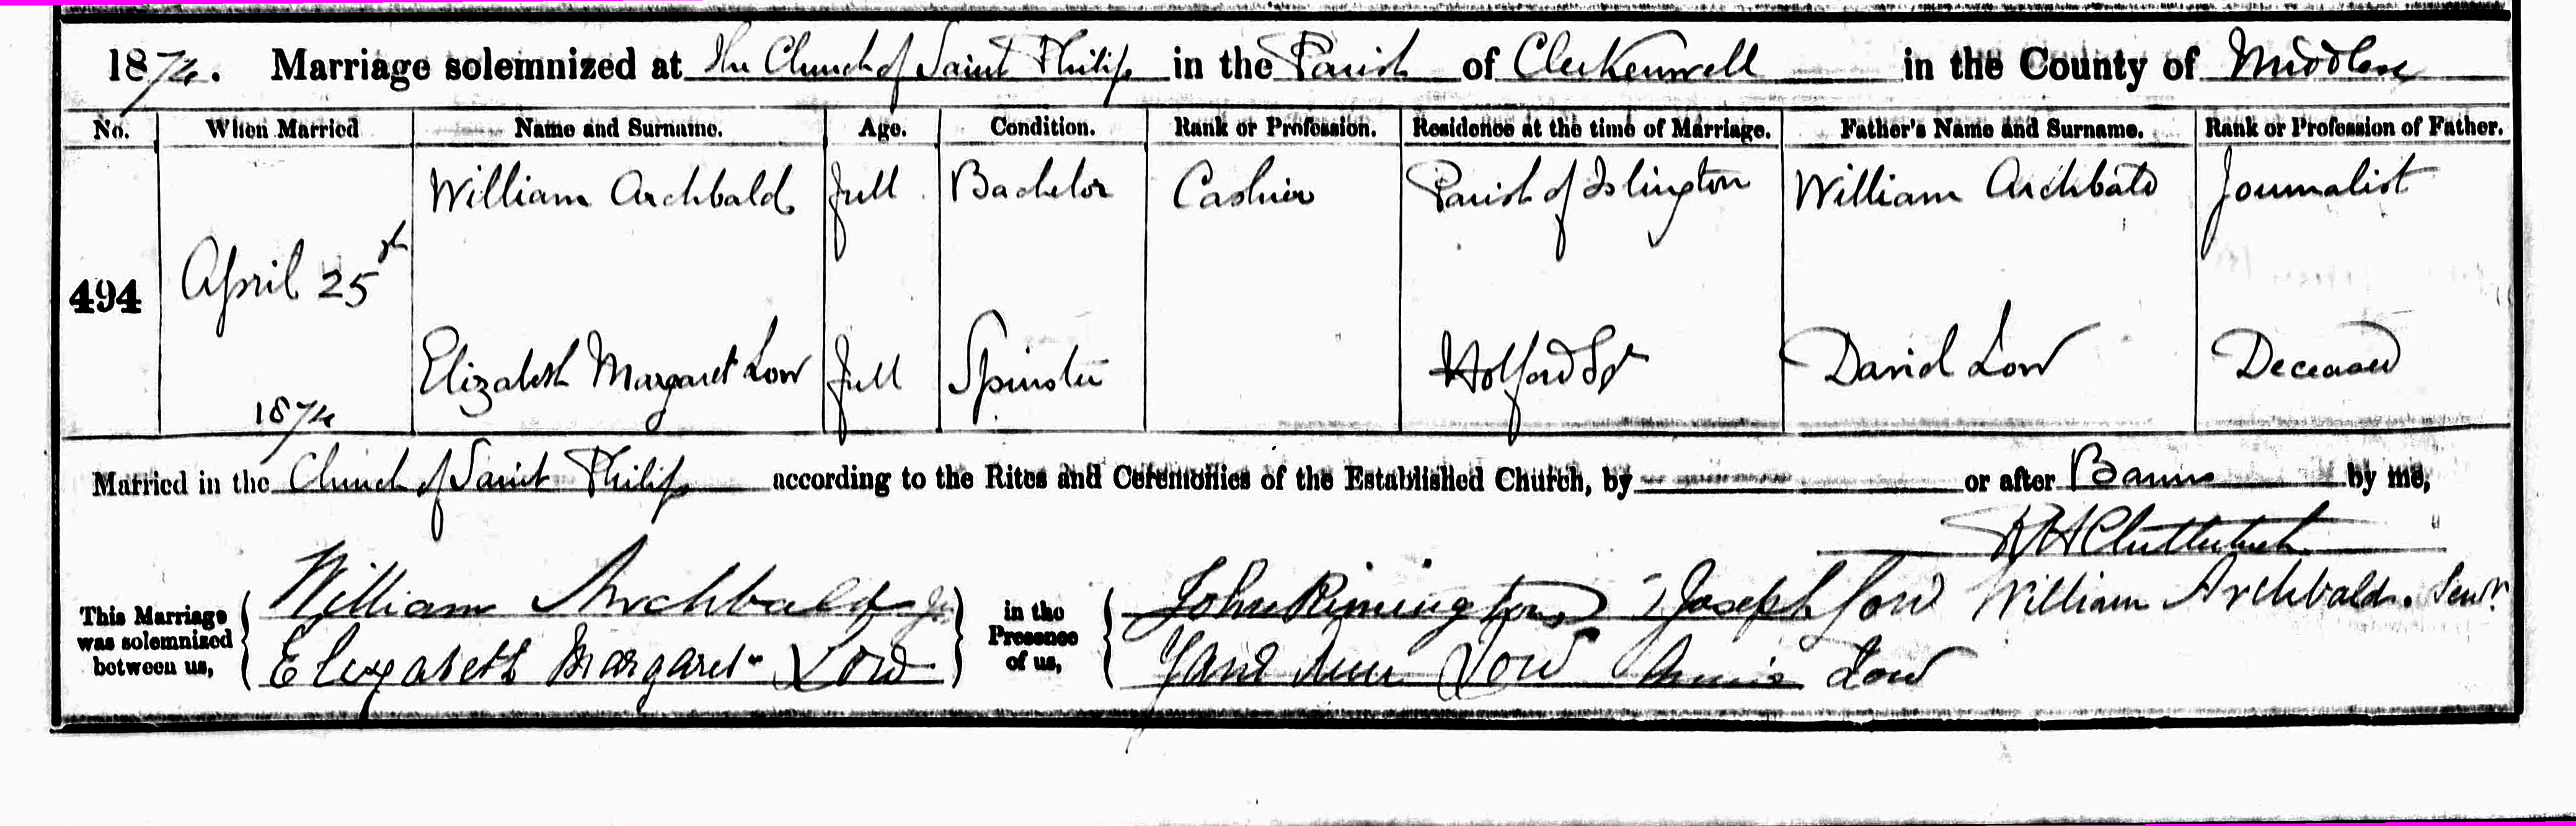 1874. Marriage solemnized at The Church of Saint Philip in the Parish of Clerkenwell in the County of Middlesex
No. When Married Name and Surname. Age. Condition. Rank or Profession. Residence at the time of Marriage. Father's Name and Surname. Rank or Profession of Father.
William Archbald full Bachelor Cashier Parish of Islington William Archbald Journalist
494 April 25th
1874 Elizabeth Margaret Low full Spinster Holford Sq David Low Deceased
Married in the Church of Saint Philip according to the Rites and Ceremonies of the Established Church, by or after Banns by me,
R H Clutterbuck
This Marriage was solemnized between us, William Archbald Jr in the Presence of us, John Rimington Joseph Low William Archbald. Senr.
Elizabeth Margaret Low Jane Ann Low Annie Low